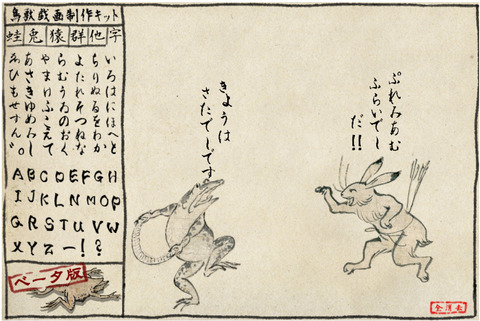 鳥獣戯画制作キット
蛙 兎 猿 群 他 字
いろはにほへと
ちりぬるをわか
よたれそつねな
らむうゐのおく
やまけふこえて
あさきゆめみし
ゑひもせすん゛。
ABCDEFGH
IJKLMNOP
QRSTUVW
XYZー!?
ベータ版
ぷれみあむ
ふらいでー
だ!!
きようは
さたでーです
全消去